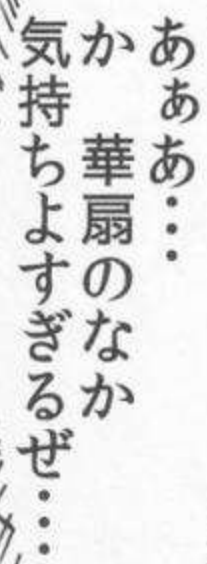 あぁあ…
か　華扇のなか
気持ちよすぎるぜ…